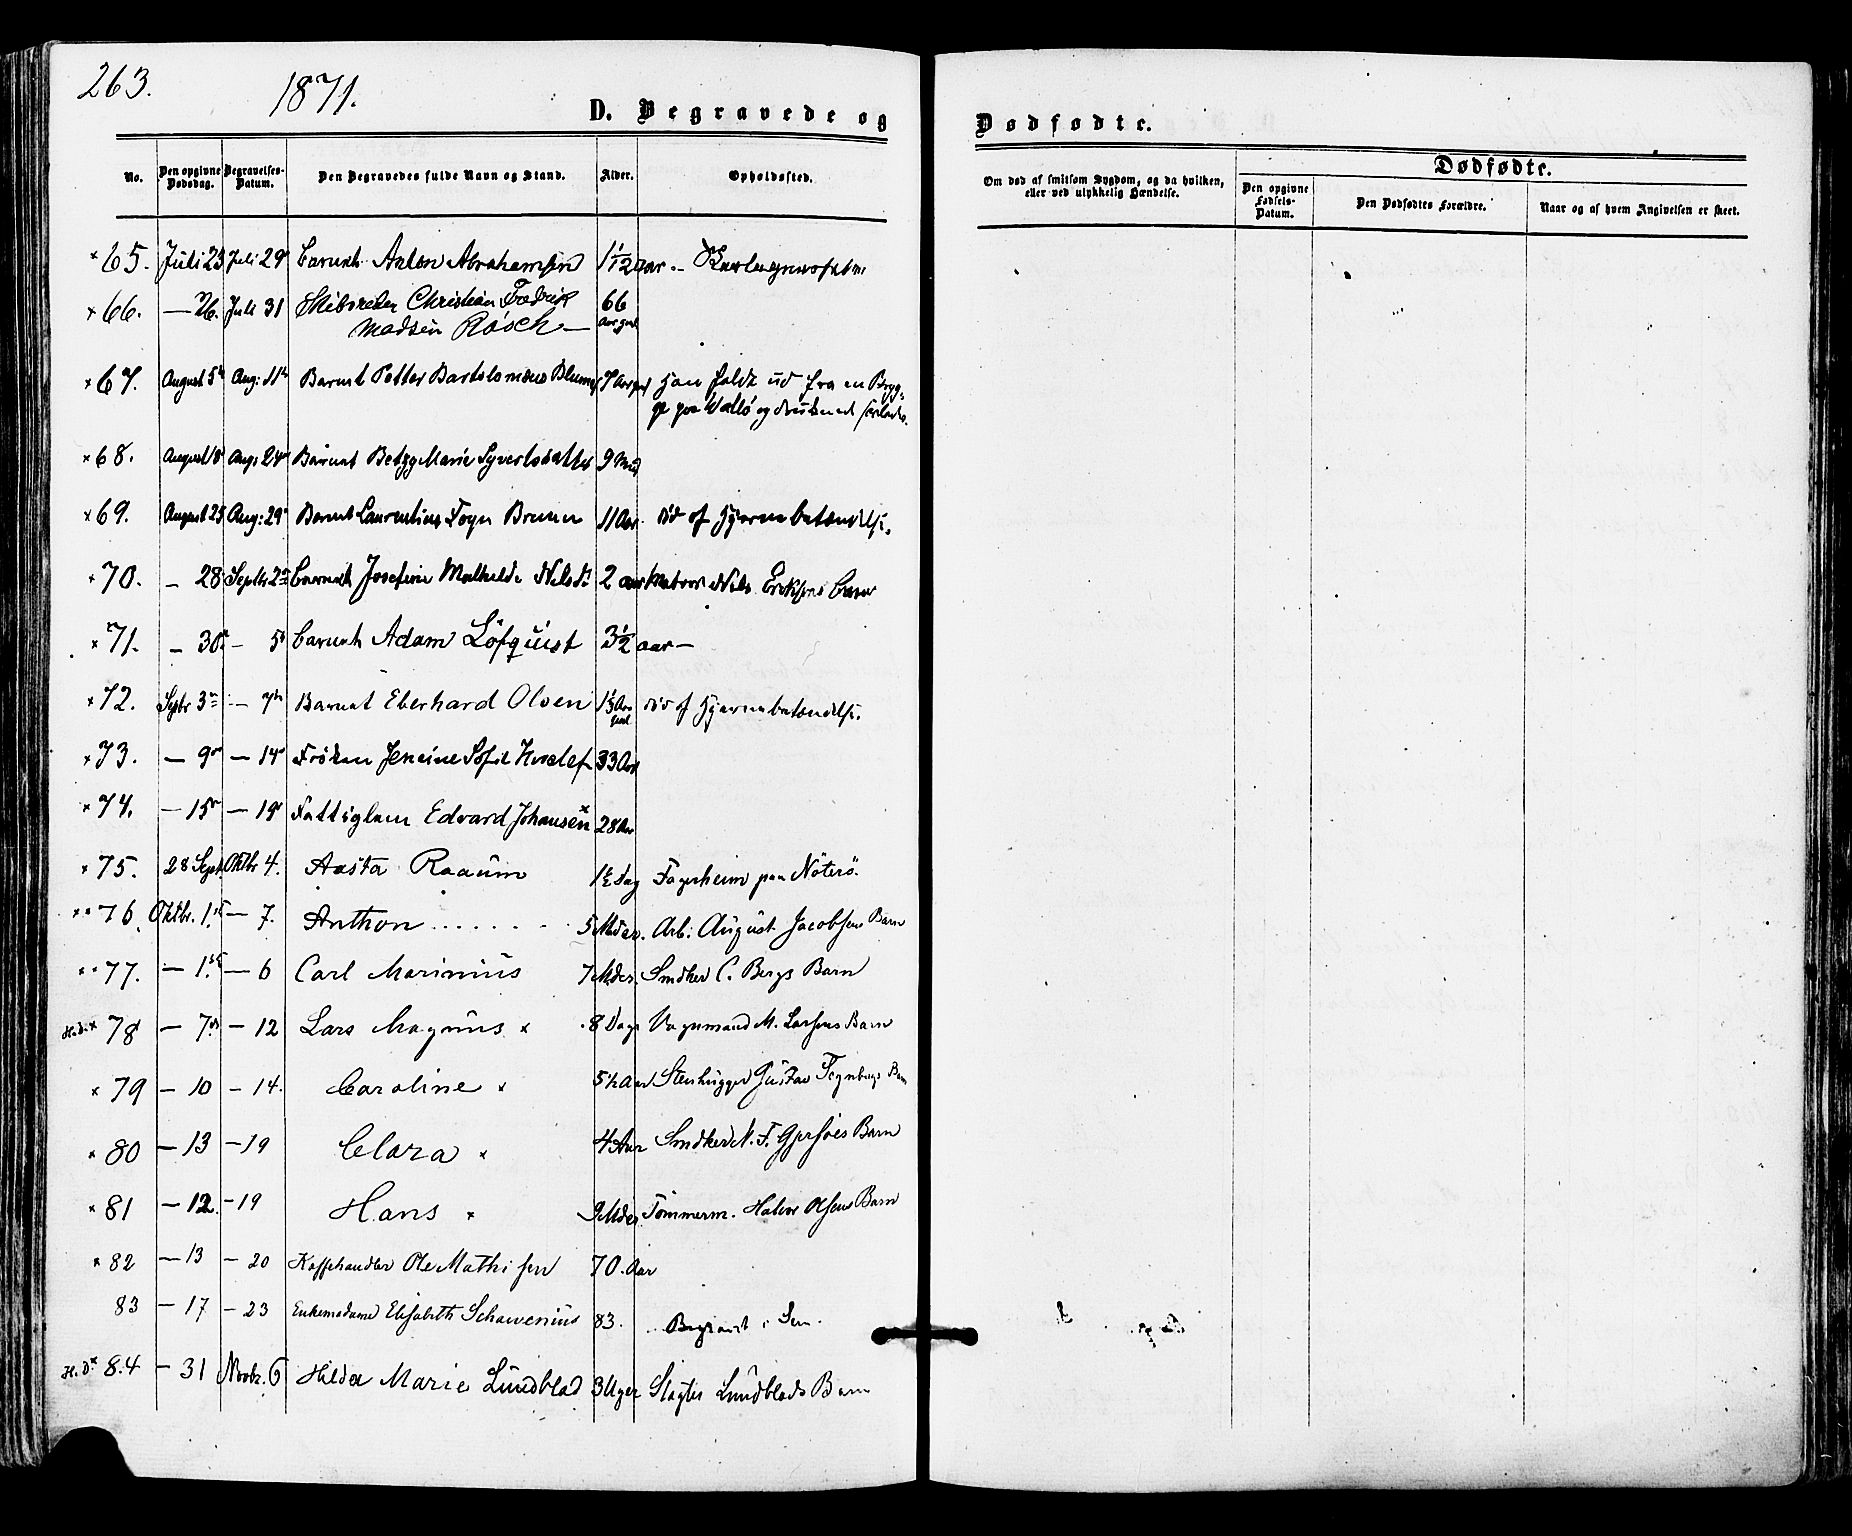 263.
1871.
D. Begravede og
Dødfødte.
No.
Den opgivne Dødsdag.
Begravelses-Datum.
Den Begravedes fulde Navn og Stand.
Alder.
Opholdssted.
Om død af smitsom Sygdom, og da hvilken, eller ved ulykkelig Hændelse.
Dødfødte.
Den opgivne Fødsels-Datum.
Den Dødfødtes Forældre.
Naar og af hvem Angivelsen er skeet.
× 65. Juli 23 Juli 29 barnet Anton Abrahamsen 1 1/12 aar.
× 66. — 26. Juli 31 Skibsreder Christian Fredrik
Madsen Rösch — 66 Aar gml
× 67. August 5te Aug: 11te Barnet Petter Bartolomæus 7 Aar gml Han faldt ud fra en Bryg-
ge paa Vallö og drukned
× 68. August 18 Aug: 24 Barnet Betzy Marie Syvertsdatter 9 Mnd
× 69. August 25 Aug: 29 Barnet Laurentius Foyn Bruun 11 Aar. död af Hjernebetændelse.
× 70. — 28 Septbr 2den barnet Josefine Mathilde Nilsd. 2 aar Matros Nils Eriksens barn
× 71. — 30 — 5te barnet Adam Löfquist 3 1/2 aar —
× 72. Septbr 3die — 7de Barnet Eberhard Olsen 1 1/2 Aar gml död af Hjernebetændelse.
× 73. — 9de — 14de Fröken Jensine Sofie 33 Aar
× 74. — 15de — 19de Fattiglem Edvard Johansen × 28 Aar
× 75. 28 Sept. Oktbr 4. Aasta Raaum 1 1/2 Dag Fagerheim paa Nöterö.
×× 76. Oktbr. 1ste — 7. Anthon . . . . . . . 5 Mder. Arb: August Jacobsens Barn
×× 77. — 1ste — 6 Carl Marinius 7 Mder. Smdker C. Bergs Barn
H.d. × 78 — 7de — 12 Lars Magnus × 8 Dage Vognmand M. Larsens Barn
× 79 — 10 — 14. Caroline × 5 1/2 aar Stenhugger Gustav Barn
× 80 — 13 — 19 Clara × 4 Aar Smdker N. F. Barn
× 81 — 12. — 19 Hans × 9 Mder Tömmerm. Halvor Olsens Barn
× 82 — 13 — 20 Kaffehandler Ole Mathisen 70. Aar
83 — 17 — 23 Enkemadame Elisabeth Schawenius 83. Begravet i Sem.
H.D. × 84 — 31 Novbr. 6 Hilda Marie Lundblad 3 Uger Slagter Lundblads Barn